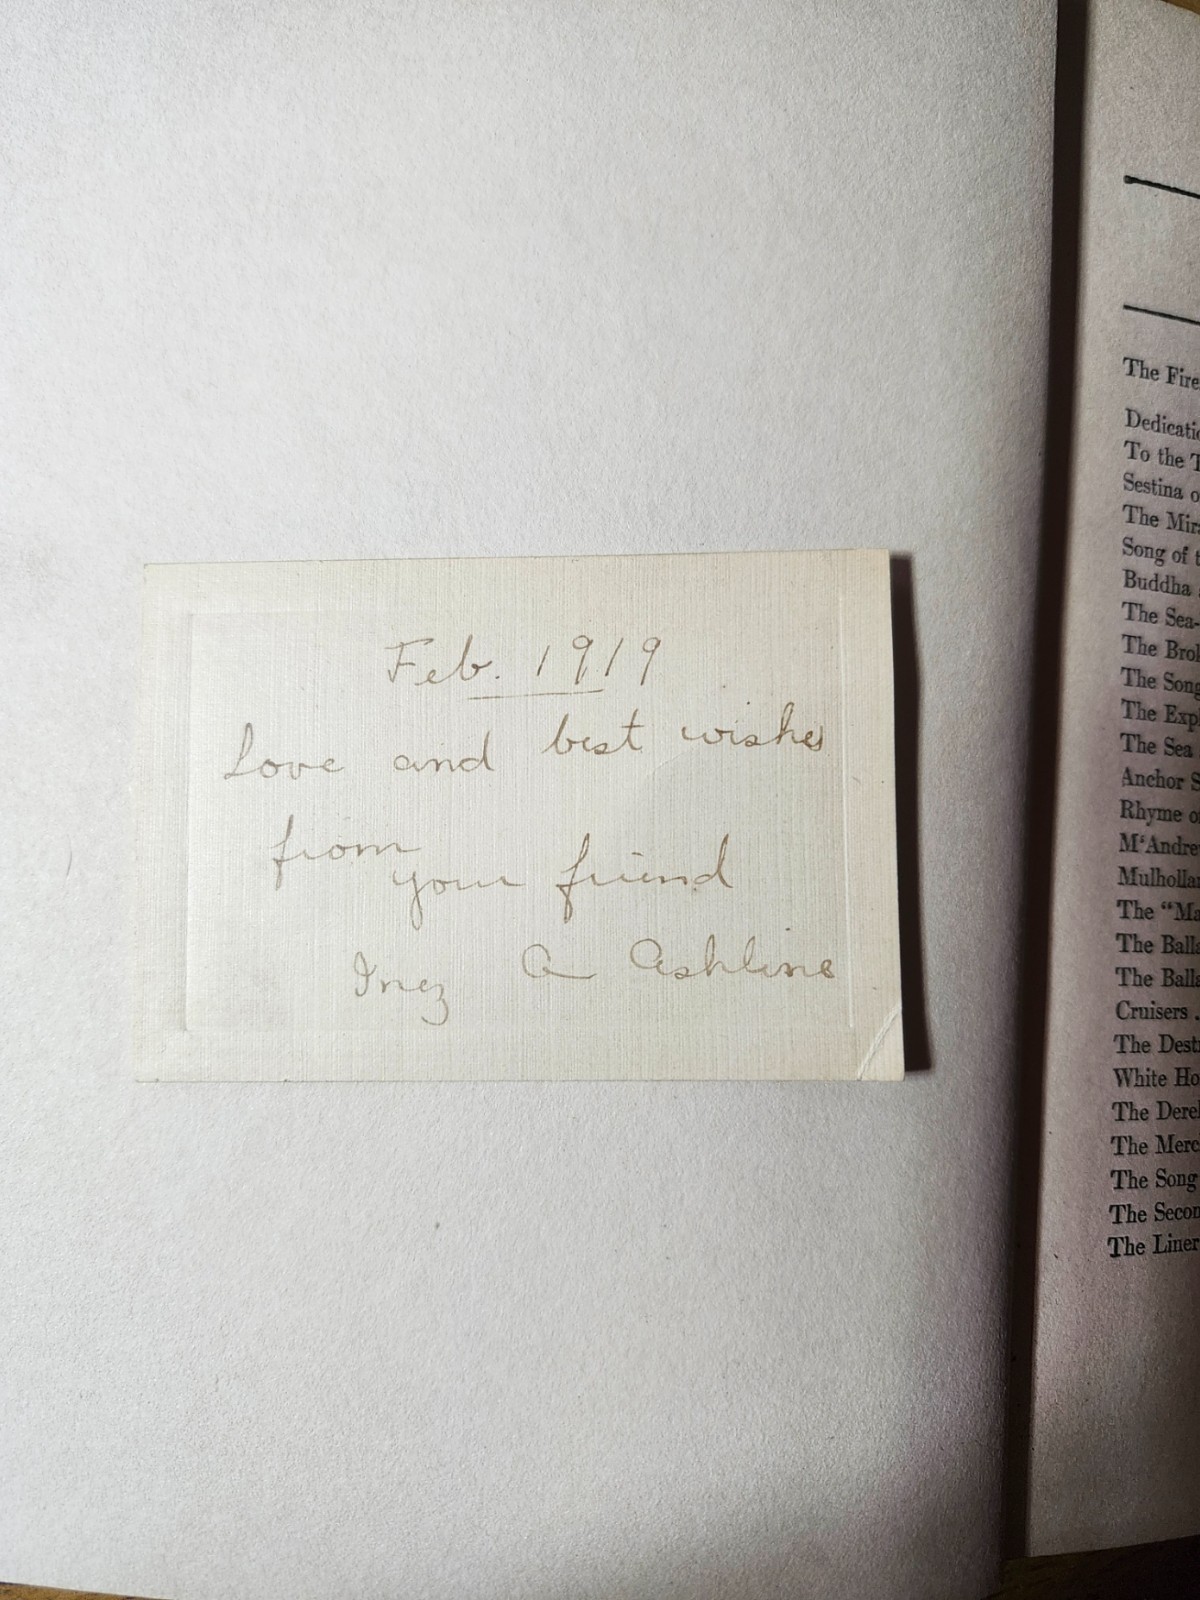 Feb. 1919
Love and best wishes
from
your friend
Inez A Ashline
The Fire
Dedicatio
To the T
Sestina o
The Mir
Song of t
Buddha
The Sea-
The Brok
The Song
The Exp
The Sea
Anchor S
Rhyme o
M'Andre
Mulholla
The "Ma
The Balla
The Balla
Cruisers .
The Dest
White Ho
The Derel
The Merc
The Song
The Secon
The Liner